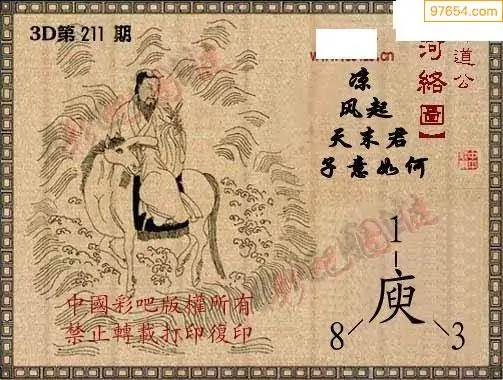 97654.com
3D第 211 期
道公
河络圖】
凉
风起
天末君
子意如何
1
庾
8
3
中國彩吧版權所有
禁止轉載打印復印